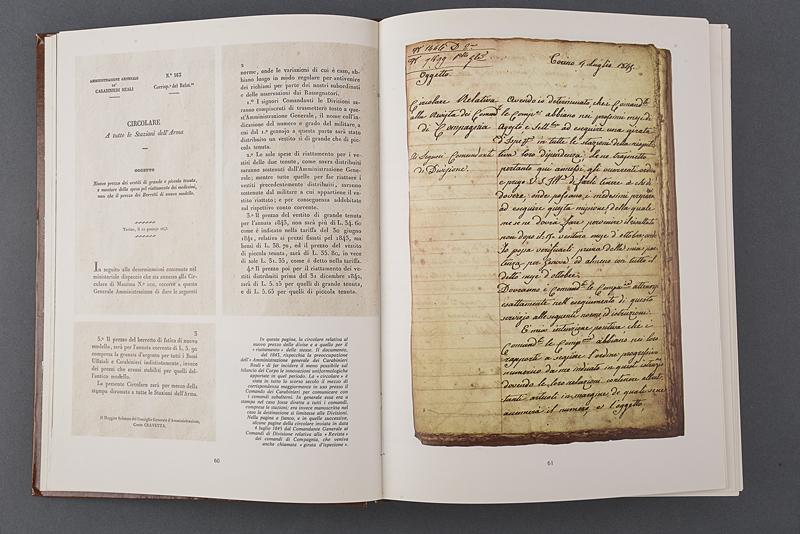 AMMINISTRAZIONE GENERALE
DE'
CARABINIERI REALI
N.º 163
Corrisp.ª del Balist.º
CIRCOLARE
A tutte le Stazioni dell'Arma
OGGETTO
Nuovo prezzo dei vestiti di grande e piccola tenuta,
e montare della spesa pel riattamento dei medesimi,
non che il prezzo dei Berretti di nuovo modello.
Torino, il 12 gennajo 1843
In seguito alle determinazioni contenute nel
ministeriale dispaccio che va annesso alla Circo-
lare di Massima N.º 101, occorre a questa
Generale Amministrazione di dare le seguenti
2
norme, onde le variazioni di cui è caso, ab-
biano luogo in modo regolare per antivenire
dei richiami per parte dei nostri subordinati
e delle osservazioni da Rassegnatori.
1.º I signori Comandanti le Divisioni sa-
ranno compiacenti di trasmettere tosto a que-
st'Amministrazione Generale, il nome coll'in-
dicazione del numero e grado del militare, a
cui dal 1.º gennajo a questa parte sarà stato
distribuito un vestito sì di grande che di pic-
cola tenuta.
2.º Le sole spese di riattamento per i ve-
stiti delle due tenute, come sovra distribuiti
saranno sostenuti dall'Amministrazione Genera-
le; mentre tutte quelle per fare riattare i
vestiti precedentemente distribuiti, saranno
sostenute dal militare a cui appartiene il ve-
stito riattato; e per conseguenza addebitate
sul rispettivo conto corrente.
3.º Il prezzo del vestito di grande tenuta
per l'annata 1843, non sarà più di L. 54. 60
come è indicato nella tariffa del 30 giugno
1841, relativa ai prezzi fissati pel 1843, ma
bensì di L. 58. 70, ed il prezzo del vestito
di piccola tenuta, sarà di L. 55. 80, in vece
di sole L. 51. 55, come è detto nella tariffa.
4.º Il prezzo poi per il riattamento dei ve-
stiti distribuiti prima del 31 dicembre 1842,
sarà di L. 5. 25 per quelli di grande tenuta,
e di L. 5. 65 per quelli di piccola tenuta.
3
5.º Il prezzo del berretto di fatica di nuovo
modello, sarà per l'annata corrente di L. 5. 90
compresa la granata d'argento per tutti i Bassi
Uffiziali e Carabinieri indistintamente, invece
dei prezzi che erano stabiliti per quelli del-
l'antico modello.
La presente Circolare sarà per mezzo della
stampa diramata a tutte le Stazioni dell'Arma.
Il Maggior Relatore del Consiglio Generale d'Amministrazione,
Conte CRAVETTA.
In questa pagina, la circolare relativa al
nuovo prezzo delle divise e a quello per il
« riattamento » delle stesse. Il documento,
del 1843, rispecchia la preoccupazione
dell'« Amministrazione generale dei Carabinieri
Reali » di far incidere il meno possibile sul
bilancio del Corpo le innovazioni uniformologiche
apportate in quel periodo. La « circolare » è
stata in tutto lo scorso secolo il mezzo di
corrispondenza maggiormente in uso presso il
Comando dei Carabinieri per comunicare con
i comandi subalterni. In generale essa era a
stampa nel caso fosse diretta a tutti i comandi,
comprese le stazioni; era invece manoscritta nel
caso la destinazione si limitasse alle Divisioni.
Nella pagina a fianco, e in quelle successive,
alcune pagine della circolare inviata in data
4 luglio 1845 dal Comandante Generale ai
Comandi di Divisione relativa alla « Rivista »
dei comandi di Compagnia, che veniva
anche chiamata « girata d'ispezione ».
60
Torino, 4 Luglio 1845.
Oggetto
Circolare Relativa
alla Rivista
di Compagnia
Ai Signori Comandanti
di Divisione.
Avendo io determinato, che i Comand.ti
le Comp.ie abbiano nei prossimi mesi di
Agosto e Sett.bre ad eseguire una girata
d'Ispez.ne in tutte le stazioni della rispett.
loro dipendenza
detto mese d'ottobre.
Dovranno i Comand.ti le Compagnie attenersi
esattamente nell'eseguimento di questo
servizio alle seguenti norme ed istruzioni.
È mia intenzione positiva che i
Comand.ti le Comp.ie abbiano nei loro
rapporti a seguire l'ordine progressivo
numerico
dovendo le loro relazioni contenere altret-
tanti articoli in margine de' quali sene
accennerà il numero e l'oggetto.
61